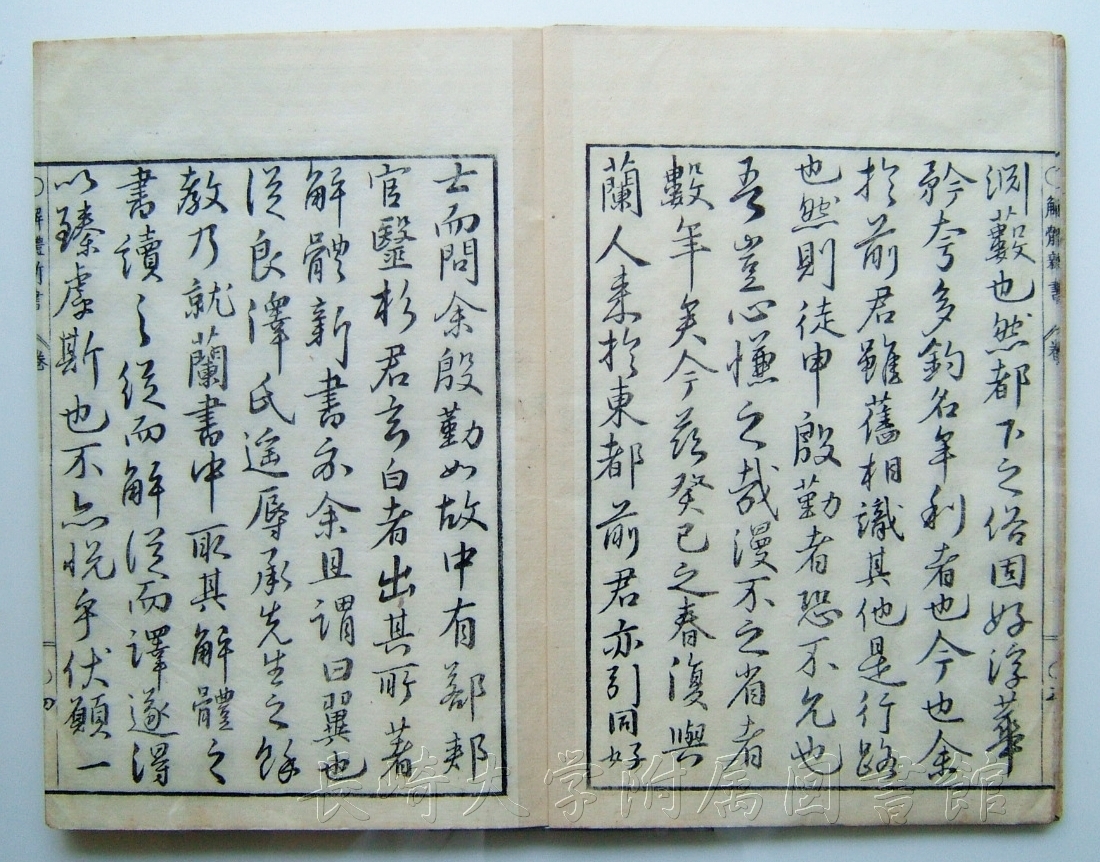 解體新書 卷
渕藪也然都下之俗固好浮華
矜夸多釣名牟利者也今也余
於前君雖舊相識其他是行路
也然則徒申殷勤者恐不允也
吾豈心慊之哉漫不之省者
數年矣今茲癸巳之春復與
蘭人來於東都前君亦引同好
士而問余殷勤如故中有鄀郟
官毉杉君玄白者出其所著
解體新書示余且謂曰翼也
從良澤氏遙辱承先生之餘
教乃就蘭書中取其解體之
書讀之從而解從而譯遂得
以臻虖斯也不亦悅乎伏願一
〇解體新書 卷 〇四
長崎大学附属図書館